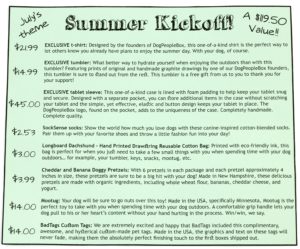 July's theme
Summer Kickoff!
A $119.50 Value!!
$21.99
EXCLUSIVE t-shirt: Designed by the founders of DogPeopleBox, this one-of-a-kind shirt is the perfect way to
let others know you already have plans to enjoy the summer day. With your dog, of course.
$14.99
EXCLUSIVE tumbler: What better way to hydrate yourself when enjoying the outdoors than with this
tumbler? Featuring prints of original and handmade graphic drawings by one of our DogPeopleBox founders,
this tumbler is sure to stand out from the rest. This tumbler is a free gift from us to you to thank you for
your support!
$45.00
EXCLUSIVE tablet sleeve: This one-of-a-kind case is lined with foam padding to help keep your tablet snug
and secure. Designed with a separate pocket, you can store additional items in the case without scratching
your tablet and the simple, yet effective, elastic and button design keeps your tablet in place. The
DogPeopleBox logo, found on the pocket, adds to the uniqueness of the case. Completely handmade.
Complete quality.
$2.53
SockSense socks: Show the world how much you love dogs with these canine-inspired cotton-blended socks.
Pair them up with your favorite shoes and throw a little fashion fun into your day!
$3.00
Longboard Dachshund - Hand Printed Drawstring Reusable Cotton Bag: Printed with eco-friendly ink, this
bag is perfect for when you just need to take a few small things with you when spending time with your dog
outdoors... for example, your tumbler, keys, snacks, mootug, etc.
$3.99
Cheddar and Banana Doggy Pretzels: With 6 pretzels in each package and each pretzel approximately 4
inches in size, these pretzels are sure to be a big hit with your dog! Made in New Hampshire, these delicious
pretzels are made with organic ingredients, including whole wheat flour, bananas, cheddar cheese, and
yogurt.
$14.00
Mootug: Your dog will be sure to go nuts over this toy! Made in the USA, specifically Minnesota, Mootug is the
perfect toy to take with you when spending time with your dog outdoors. A comfortable grip handle lets your
dog pull to his or her heart's content without your hand hurting in the process. Win/win, we say.
$14.00
BadTags Custom Tag: We are extremely excited and happy that BadTags included this complimentary,
awesome, and hysterical custom-made pet tags. Made in the USA, the graphics and text on these tags will
never fade, making them the absolutely perfect finishing touch to the first boxes shipped out.